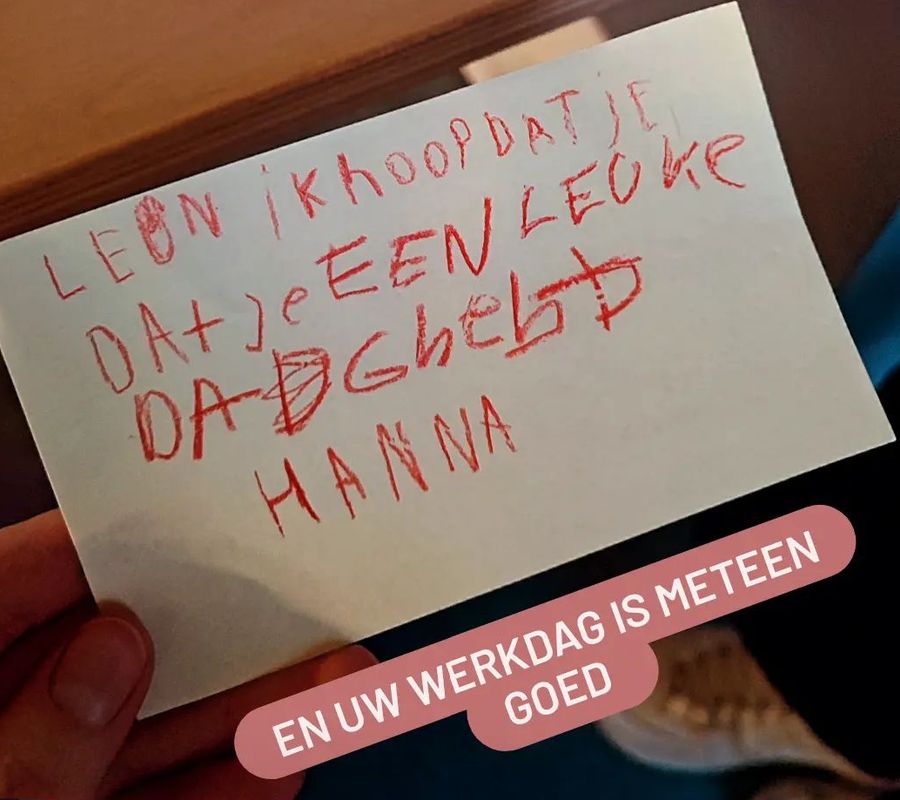 LEON iK hOOP DAT JE
DAt Je EEN LEUKe
DA G hebt
HANNA
EN UW WERKDAG IS METEEN
GOED